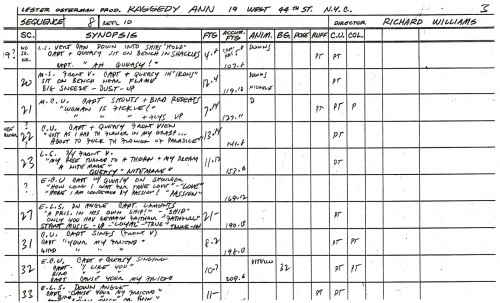 LESTER OSTERMAN PROD. RAGGEDY ANN 19 WEST 44TH ST. N.Y.C. 3
SEQUENCE 8 REEL 10 DIRECTOR RICHARD WILLIAMS
SC. SYNOPSIS FTG ACCUM. FTG ANIM. BG. POSE RUFF C.U. COL.
19? L.S. VERT PAN DOWN INTO SHIPS "HOLD"
CAPT + QUEASY SIT ON BENCH IN SHACKLES
CAPT. "AH QUEASY!" 107.8 PT PT
20 M.S. FRONT V. CAPT + QUEASY IN "IRONS"
SIT ON BENCH NEAR FLAME
BIG SNEEZE - DUST - UP 12.4 119.12 PT
21 M.C.U. CAPT SHOUTS + BIRD REPEATS
"WOMAN IS FICKLE!" 7.14 D PT PT P
+ FLYS UP 127.11
22 C.U. CAPT + QUEASY FRONT VIEW
"JUST AS I HAD TH FLOWER IN MY GRASP...
ABOUT TO PLUCK TH FLOWER OF PARADISE 13.14 141.8 DT
23 L.S. 3/4 FRONT V.
"MY ROSE TURNED TO A THORN + MY DREAM
A NITEMARE"
QUEASY "NITEMARE" 11.12 153.4 DT
? E.C.U CAPT W/ QUEASY ON SHOULDER
"HOW LONG I WAIT FOR TRUE LOVE" - "LOVE"
"HERE I AM CONDEMNED BY PASSION! "PASSION" 169.12
27 E.L.S. DN ANGLE CAPT. LAMENTS
"A PRIS. IN HIS OWN SHIP!" - "SHIP"
ONLY YOU HAV REMAIN FAITHFUL "FAITHFUL"
START MUSIC - UP - "LOYAL" - TRUE" TRUCK-IN 21- 190.12 PT
31 C.U. CAPT SINGS (FRONT V)
CAPT "YOUR MY FRIEND"
BIRD " " " 8.2 198.14 PT PT
32 E.C.U CAPT + QUEASY SINGING
CAPT. "I LIKE YOU"
BIRD " " "
CAPT 'CAUSE YOUR MY FRIEND 10.7 209.6 BG PT PT
33 E.L.S. DOWN ANGLE
CAPT "CAUSE YOUR MY FRIEND" 11- PT DT